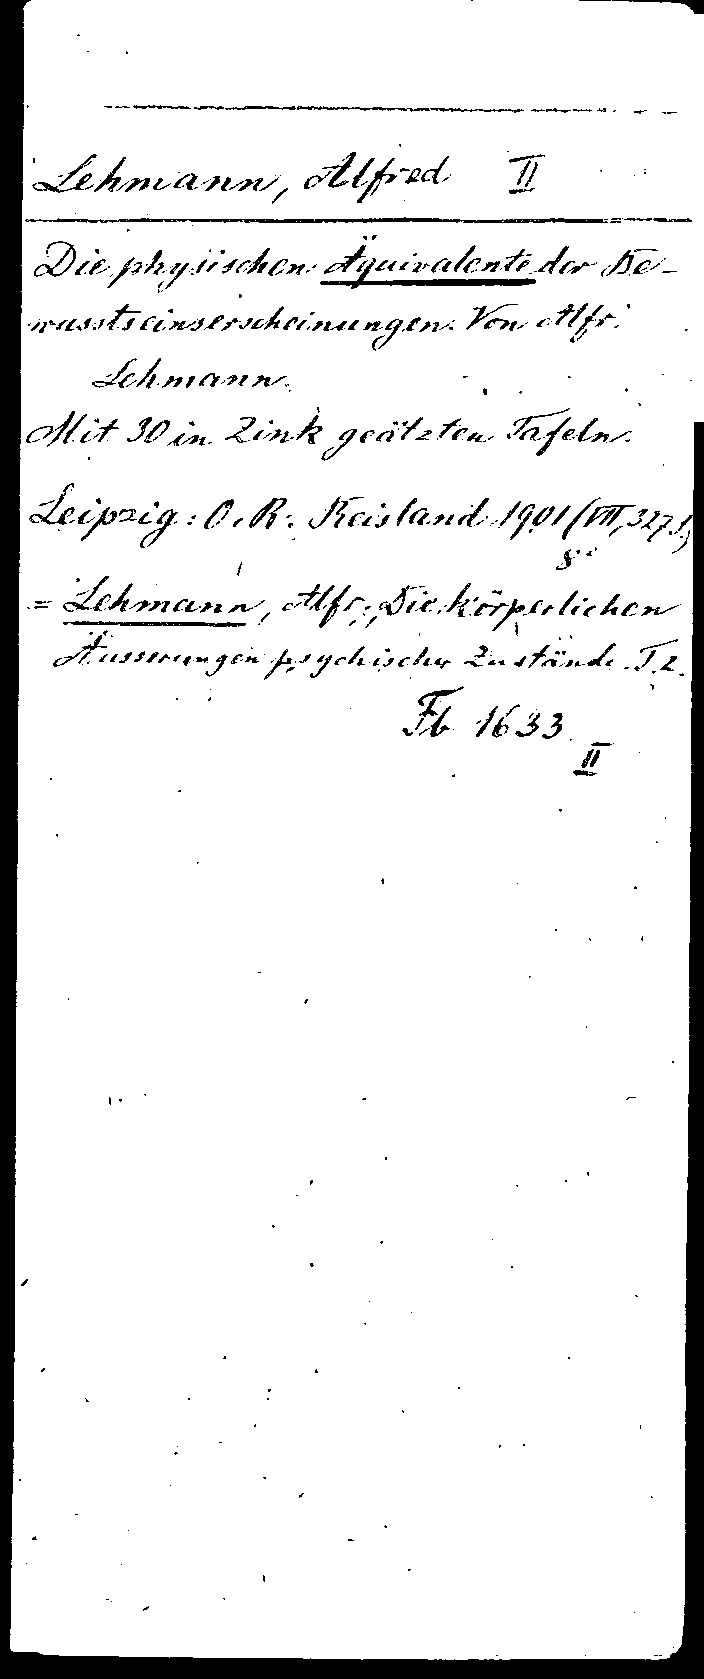 Lehmann, Alfred II
Die physischen Äquivalente der Be-
wusstseinserscheinungen. Von Alfr.
Lehmann.
Mit 30 in Zink geätzten Tafeln.
Leipzig: O. R. Reisland 1901 (VII, 327 S.)
8°
= Lehmann, Alfr.: Die körperlichen
Äusserungen psychischer Zustände. T. 2.
Fb 1633
II